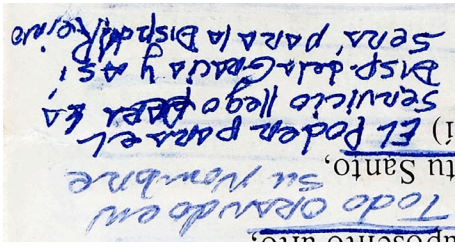 aposento alto,
Todo orando en
su Nombre
tu Santo,
i) EL Poder para el
Servicio llego para la
Disp. de la Gracia y Asi,
será para la Disp. del Reino